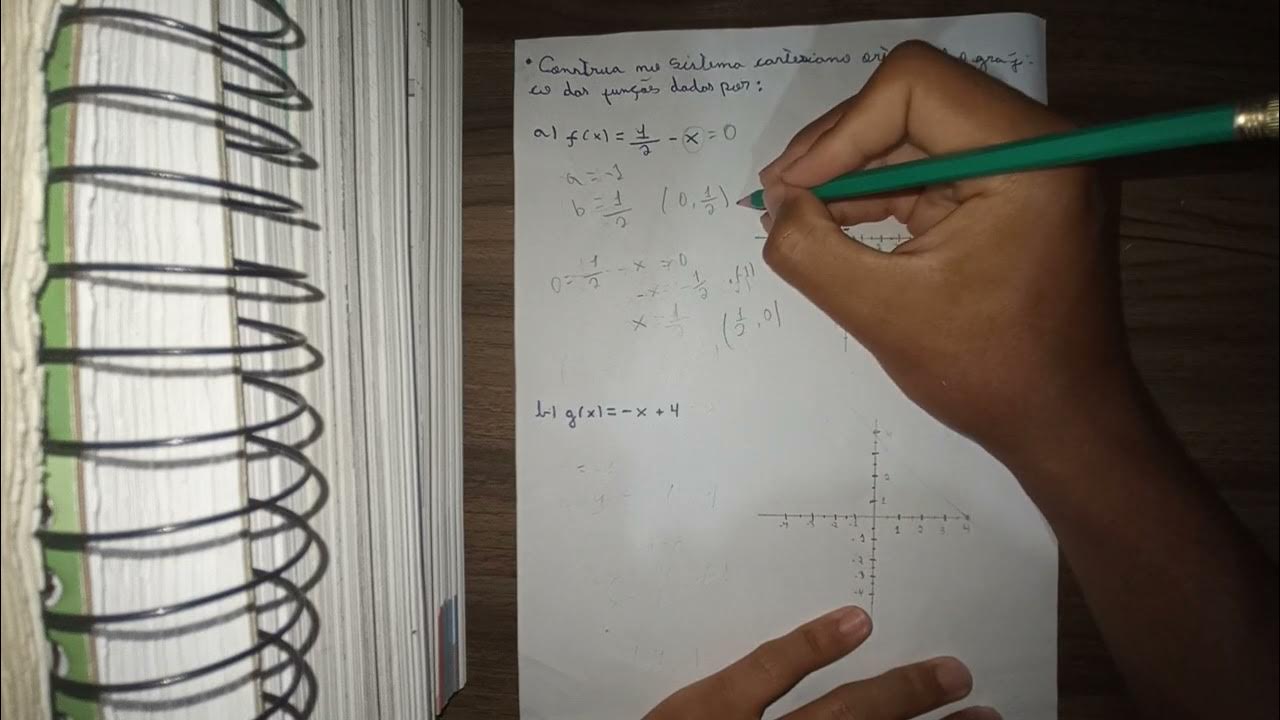 • Construa no sistema cartesiano
co das funções dados por:
a) f(x) = 1/2 - x = 0
a = -1
b = 1/2 (0, 1/2)
0 = 1/2 - x = 0
-x = -1/2 .(-1)
x = 1/2 (1/2, 0)
b) g(x) = -x + 4
2
1
-4 -3 -2 -1 1 2 3 4
-1
-2
-3
-4